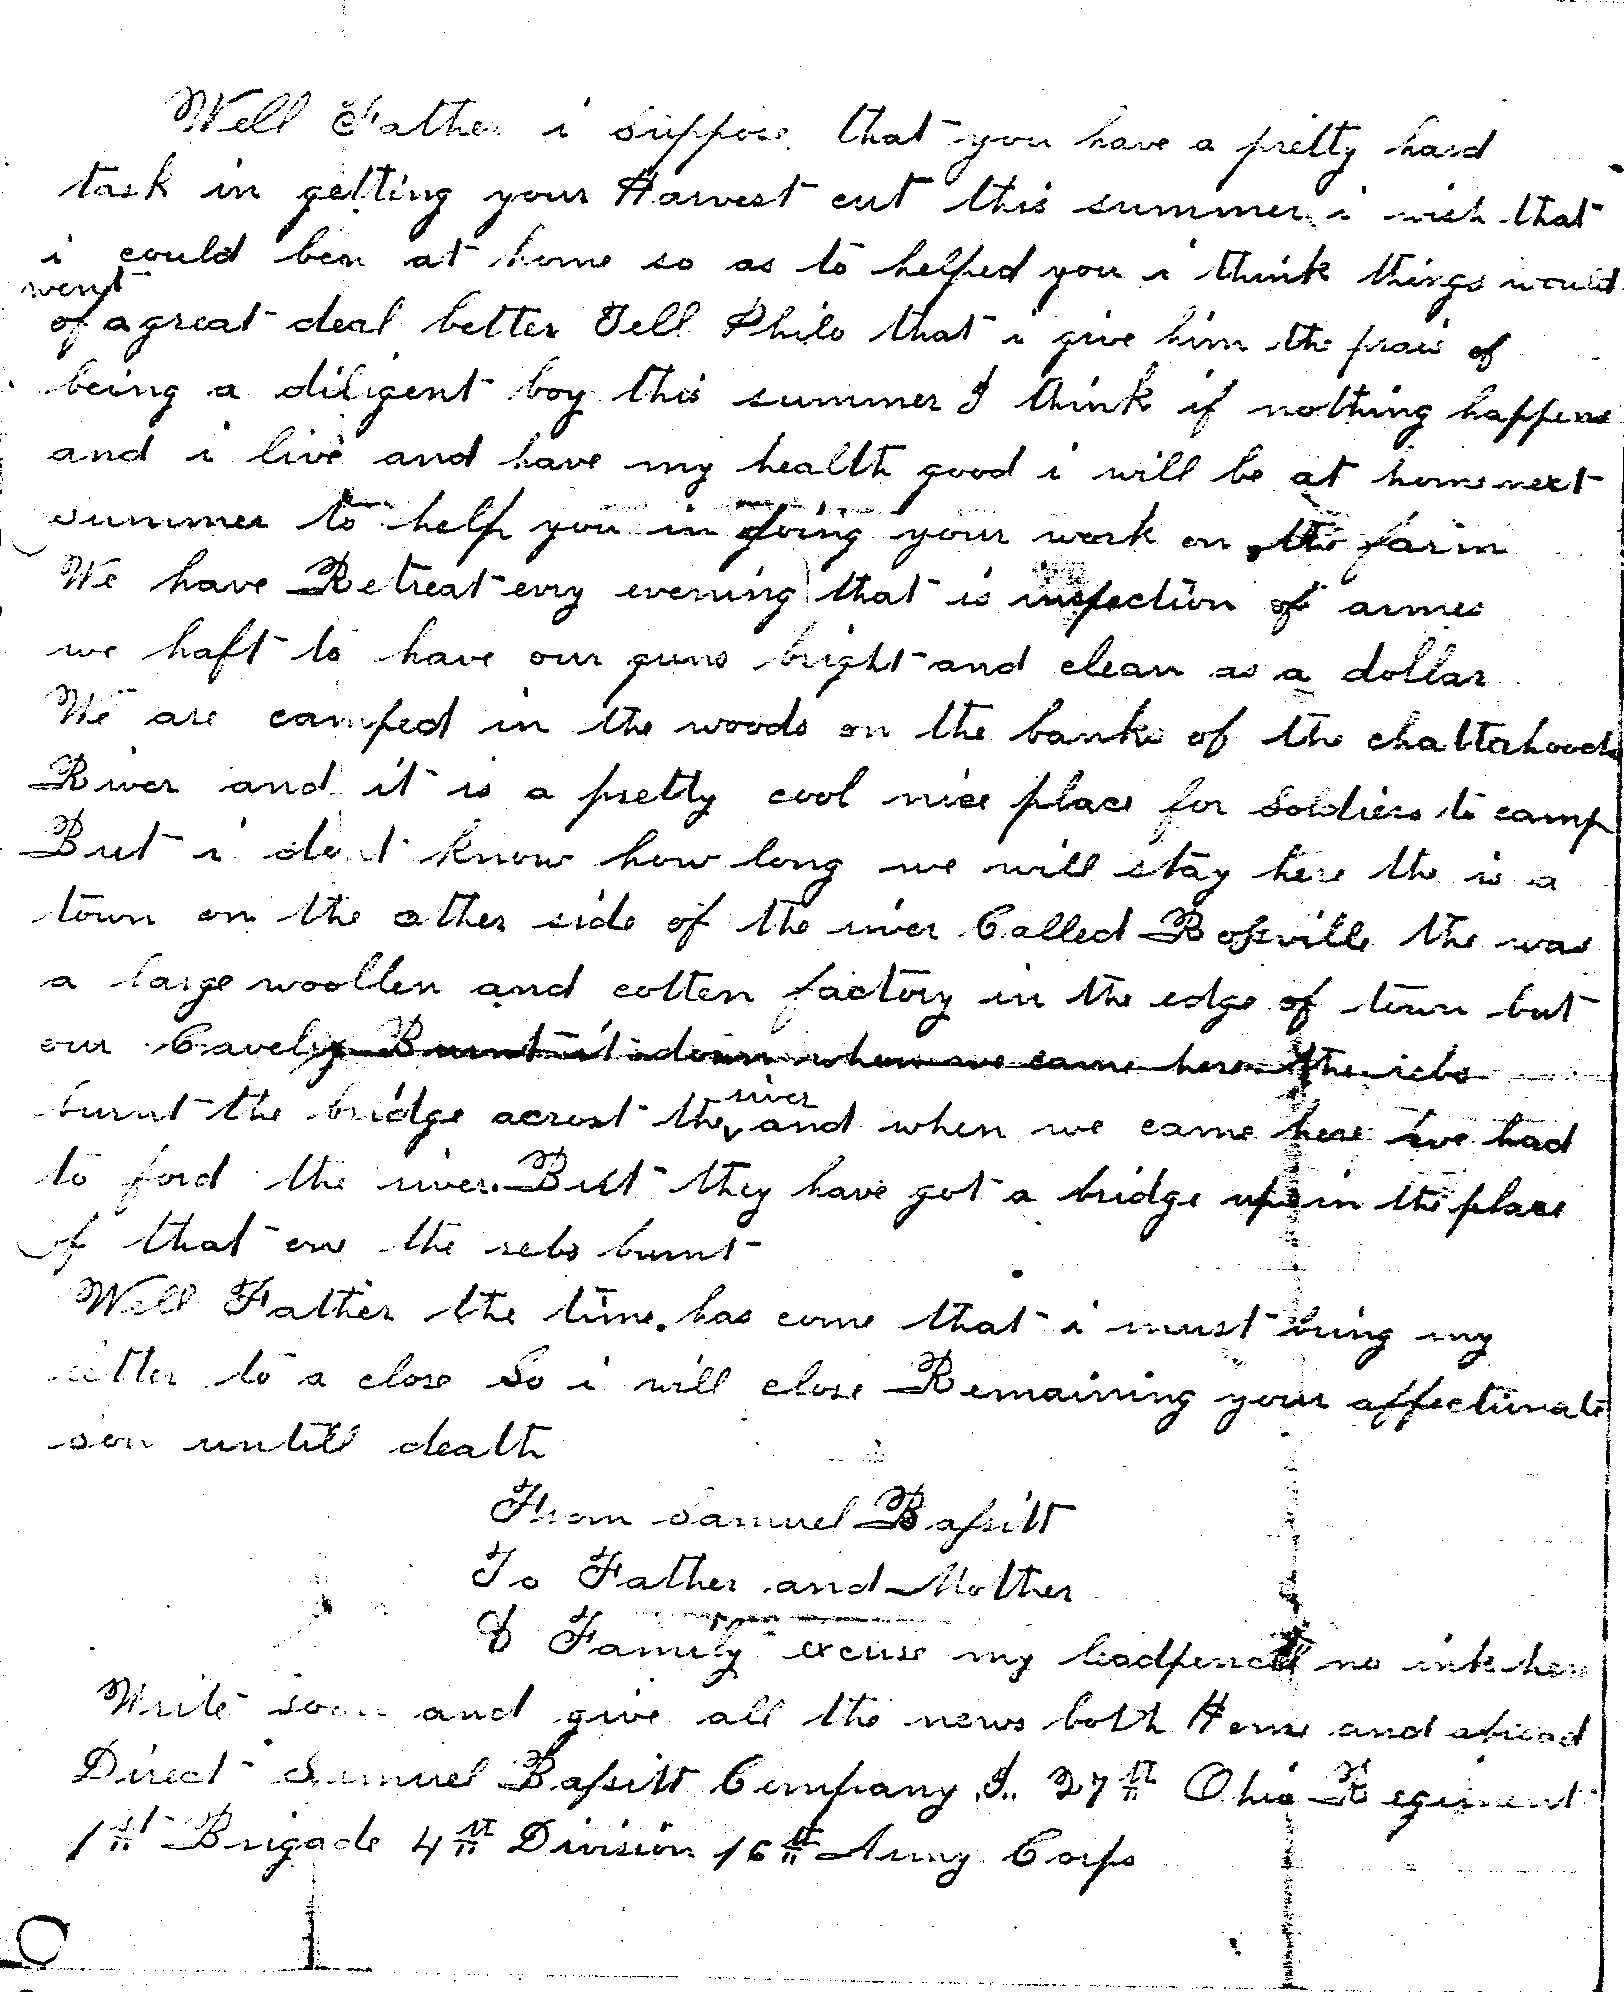 Well Father i suppose that you have a pretty hard
task in getting your Harvest cut this summer i wish that
i could ben at home so as to helped you i think things would
went
of a great deal better Tell Philo that i give him the prais of
being a diligent boy this summer I think if nothing happens
and i live and have my health good i will be at home next
summer to help you in doing your work on the farm
We have Retreat evry evening that is inspection of armes
we haft to have our guns bright and clean as a dollar
We are camped in the woods on the banks of the chattahooch
River and it is a pretty cool nice place for Soldiers to camp
But i dont know how long we will stay here the is a
town on the other side of the river Called Rossville the was
a large woollen and cotten factory in the edge of town but
our Cavelry Burnt it down when we came here the rebs
burnt the bridge acrost the river and when we came here we had
to ford the river. But they have got a bridge up in the place
of that one the rebs burnt
Well Father the time has come that i must bring my
letter to a close So i will close Remaining your affectunate
son untill death
From Samuel Bassitt
To Father and Mother
& Family excuse my leadpencil no ink here
Write soon and give all the news both Home and abroad
Direct Samuel Bassitt Company I. 27th Ohio Regiment
1st Brigade 4th Division 16th Army Corps